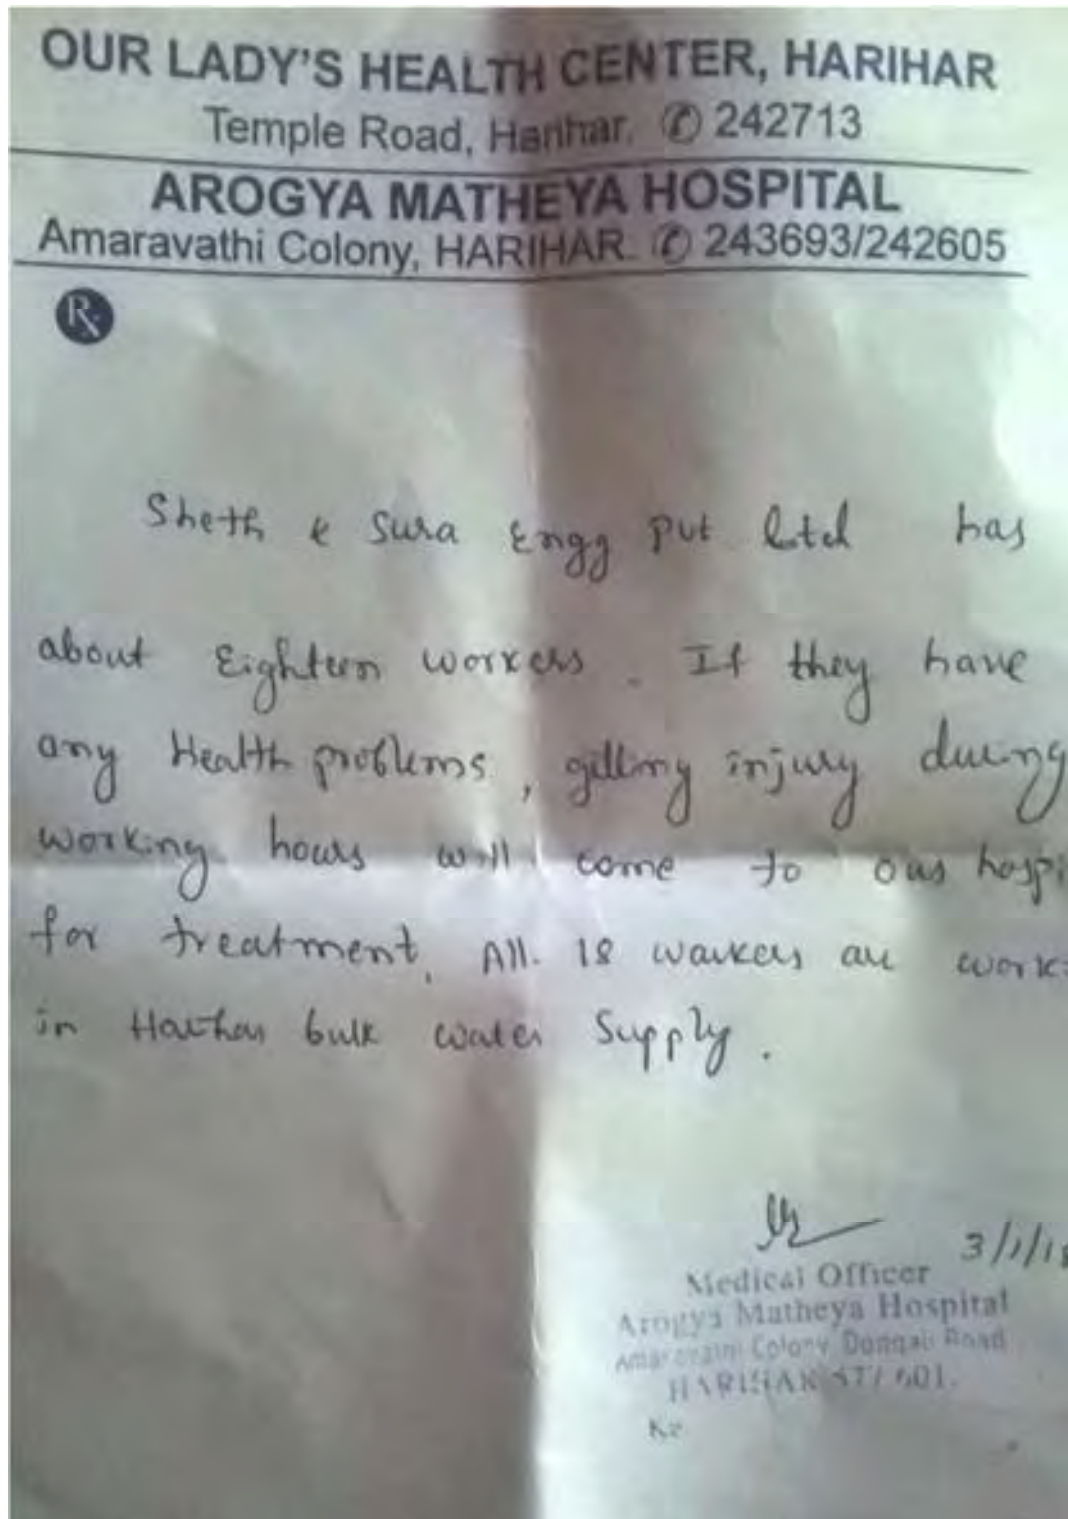 OUR LADY'S HEALTH CENTER, HARIHAR
Temple Road, Harihar. ✆ 242713
AROGYA MATHEYA HOSPITAL
Amaravathi Colony, HARIHAR. ✆ 243693/242605
Rx
Sheth & Sura Engg Pvt Ltd has
about Eighteen workers. If they have
any Health problems, getting injury during
working hours will come to our hospi
for treatment. All 18 workers are work
in Harihar bulk water Supply.
3/1/18
Medical Officer
Arogya Matheya Hospital
Amaravathi Colony Road
HARIHAR 577 601.